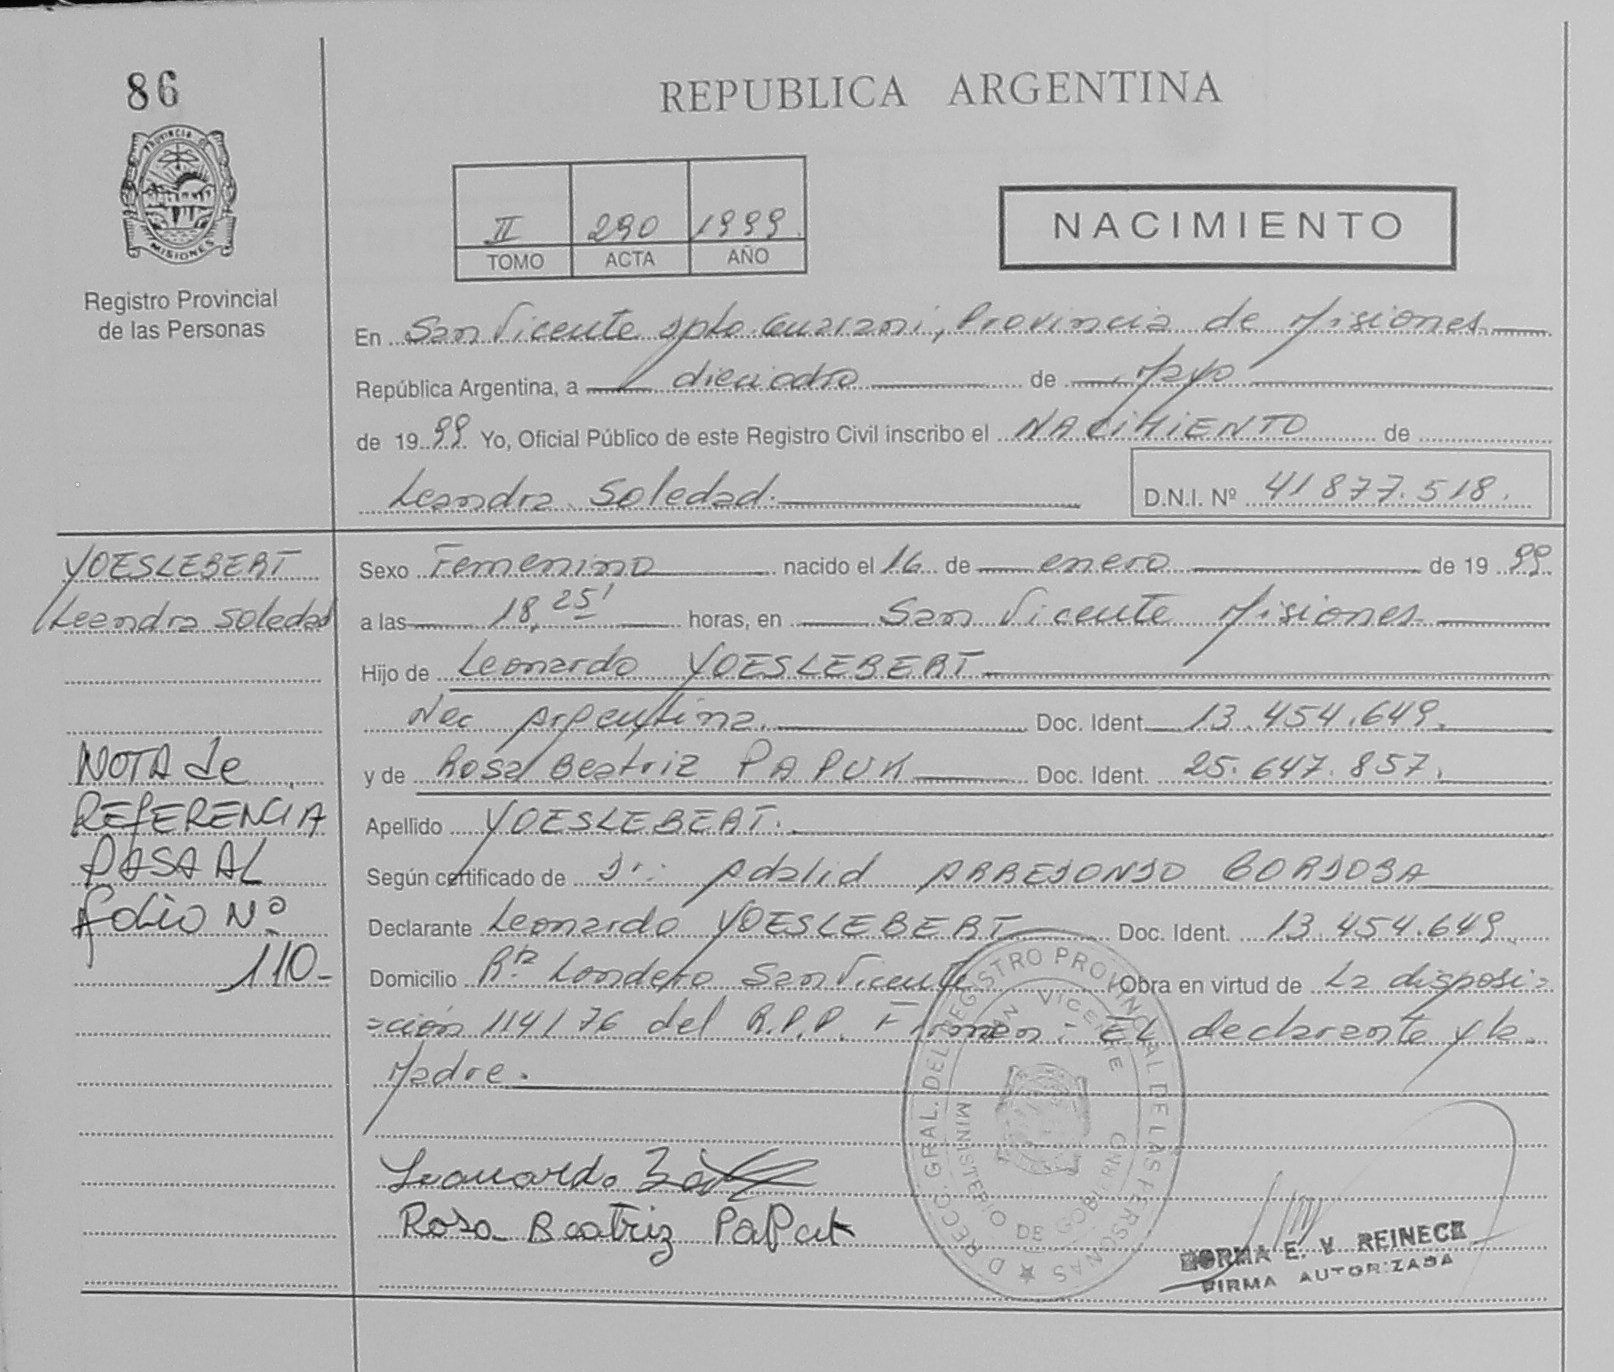 86
REPUBLICA ARGENTINA
PROVINCIA DE
MISIONES
Registro Provincial
de las Personas
II 290 1999
TOMO ACTA AÑO
NACIMIENTO
En San Vicente Dpto. Guarani, Provincia de Misiones
República Argentina, a dieciocho de Mayo
de 1999 Yo, Oficial Público de este Registro Civil inscribo el NACIMIENTO de
Leandra Soledad.
D.N.I. Nº 41877.518.
YOESLEBERT
Leandra Soledad
Sexo Femenino nacido el 16 de enero de 1999
a las 18,25' horas, en San Vicente Misiones
Hijo de Leonardo YOESLEBERT
Nac Argentina. Doc. Ident. 13.454.649.
y de Rosa Beatriz PAPUK Doc. Ident. 25.647.857.
Apellido YOESLEBERT.
Según certificado de Dr: Adalid ARREDONDO CORDOBA
Declarante Leonardo YOESLEBERT Doc. Ident. 13.454.649
Domicilio Londero San Vicente Obra en virtud de La disposi=
=ción 114/76 del R.P.P. Firman: El declarante y la
Madre.
NOTA de
REFERENCIA
PASA AL
folio Nº
110-
Leonardo
Rosa Beatriz Paput
DIRECC. GRAL. DEL REGISTRO PROVINCIAL DE LAS PERSONAS
SAN VICENTE
MINISTERIO DE GOBIERNO
NORMA E. V. REINECK
FIRMA AUTORIZADA